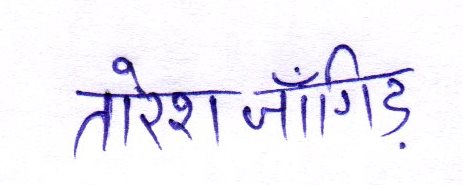 तारेश जाँगिड़